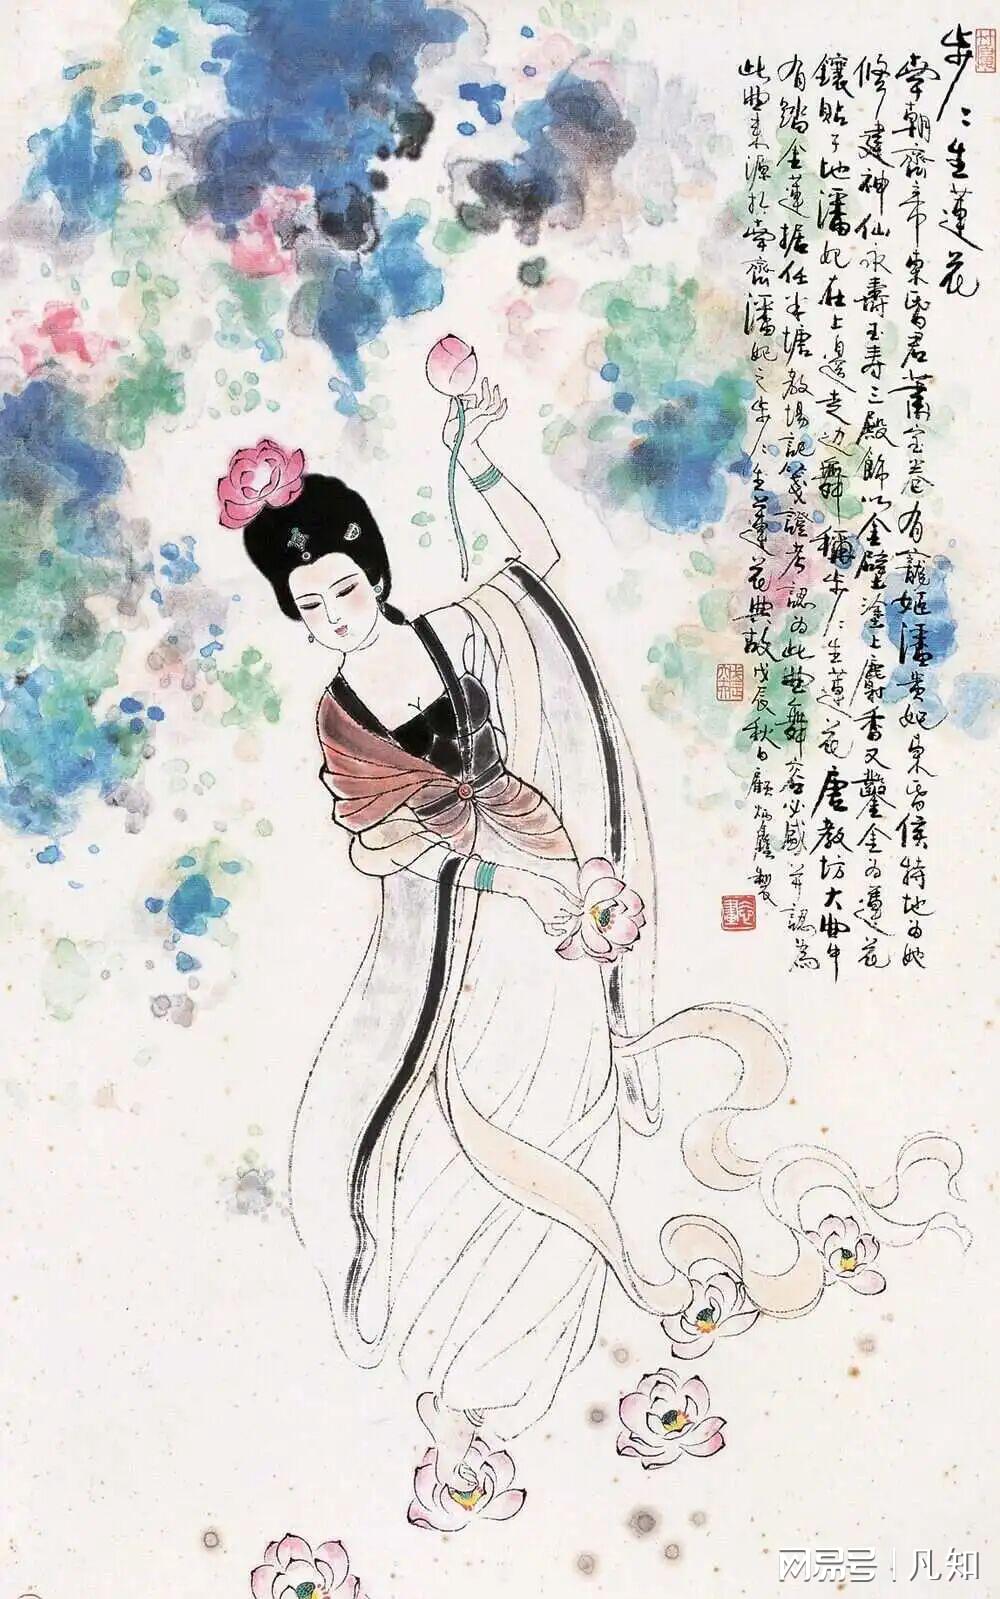 步〻生蓮花
南朝齊帝東昏君蕭宝卷有寵姬潘貴妃東昏侯特地為她
修建神仙永壽玉寿三殿飾以金壁塗上麝香又鑿金為蓮花
鑲貼于地潘妃在上邊走边舞稱步〻生蓮花唐教坊大曲中
有踏金蓮据任半塘教坊記箋證考認為此曲舞容必盛並認為
此曲来源於南齊潘妃之步〻生蓮花典故戊辰秋日顧炳鑫製
网易号 | 凡知